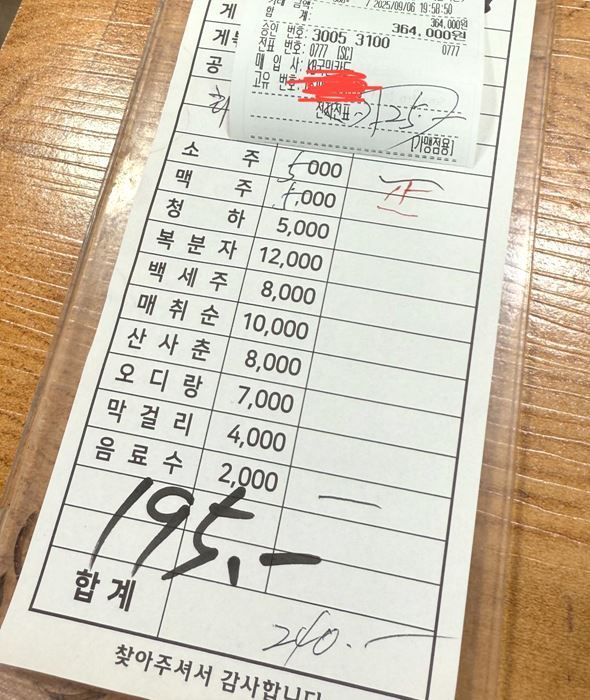 /2025/09/06 19:58:50
거래 금액 364,000원
합 계: 364,000원
승인 번호: 3005 3100 0777
전표 번호: 0777 [SC]
매 입 사: KB국민카드
고유 번호:
전자전표
25
[가맹점용]
게
게
공
소 주 5000
맥 주 ,000 正
청 하 5,000
복 분 자 12,000
백 세 주 8,000
매 취 순 10,000
산 사 춘 8,000
오 디 랑 7,000
막 걸 리 4,000
음 료 수 2,000 一
195.-
합 계 240.-
찾아주셔서 감사합니다